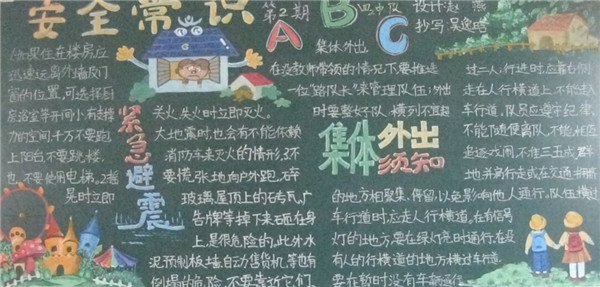 安全常识
第2期
ABC
四中队
设计:赵燕
抄写:吴逸晗
如果住在楼房应
迅速远离外墙及门
窗的位置,可选择厨
房浴室等开间小有支撑
力的空间,千万不要跑
上阳台,不要跳楼,
也不要使用电梯,2.当
晃时立即
紧急避震
关火,失火时立即灭火。
大地震时,也会有不能依赖
消防车来灭火的情形,3.不
要慌张地向户外跑,碎
玻璃屋顶上的砖瓦、广
告牌等掉下来砸在身
上,是很危险的,此外水
泥预制板墙、自动售货机等也有
倒塌的危险,不要靠近它们
集体外出
在没教师带领的情况下要推选
一位“路队长”来管理队伍;外出
时要整好队,横列不宜超
集体外出须知
过二人;行进时,应靠右侧
走在人行横道上,不能走入
车行道,队员应遵守纪律,
不能随便离队,不能相互
追逐戏闹,不准三五成群
地并肩行走或在交通拥挤
的地方相聚集、停留,以免影响他人通行。队伍横过
车行道时应走人行横道,在有信号
灯的地方要在绿灯亮时通行,在没
有人行横道的地方横过车行道,
要在暂时没有车辆通行